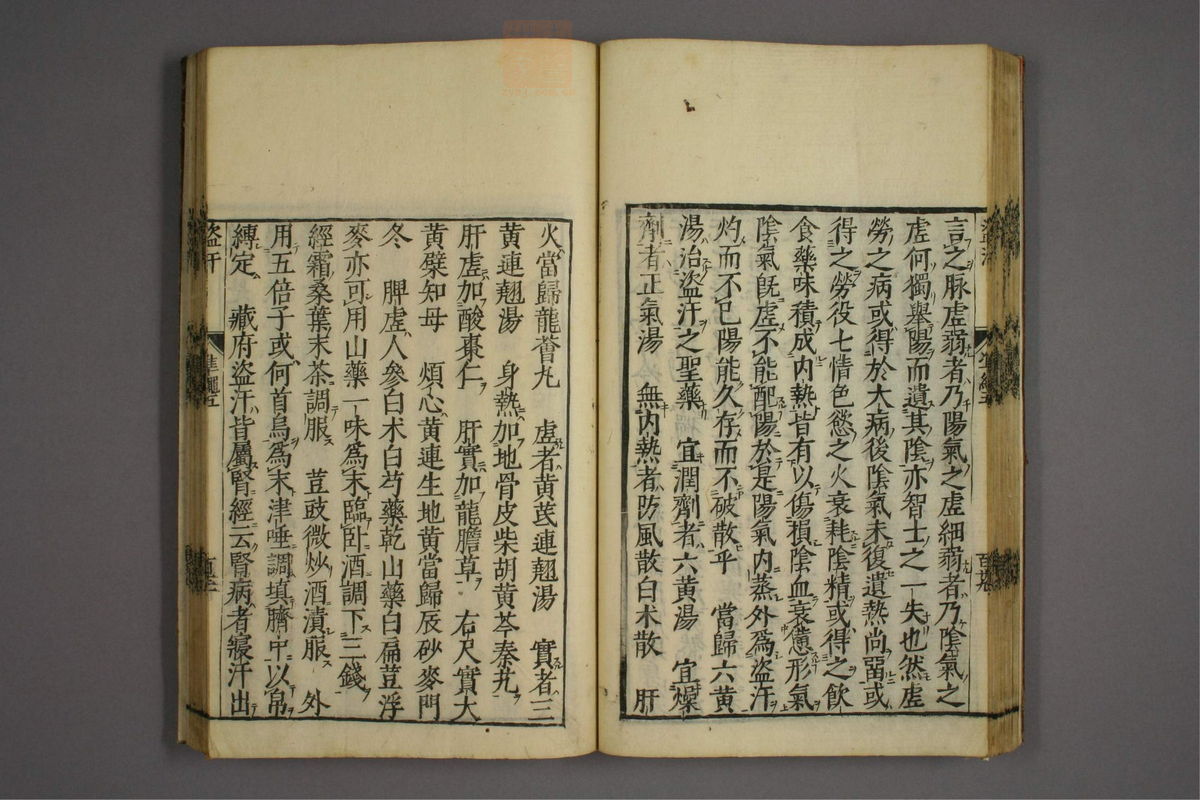 言之脉虚弱者乃陽氣之虚細弱者乃陰氣之
虚何獨舉陽而遺其陰亦智士之一失也然虚
勞之病或得於大病後陰氣未復遺熱尚畱或
得之勞役七情色慾之火衰耗陰精或得之飲
食藥味積成内熱皆有以傷損陰血衰憊形氣
陰氣旣虚不能配陽於是陽氣内蒸外爲盗汗
灼而不已陽能久存而不破散乎　當歸六黄
湯治盗汗之聖藥　宜潤劑者六黄湯　宜燥
劑者正氣湯　無内熱者防風散白术散　肝
火當歸龍薈丸　虚者黄芪連翹湯　實者三
黄連翹湯　身熱加地骨皮柴胡黄芩秦艽
肝虚加酸棗仁　肝實加龍膽草　右尺實大
黄檗知母　煩心黄連生地黄當歸辰砂麥門
冬　脾虚人參白术白芍藥乾山藥白扁荳浮
麥亦可用山藥一味爲末臨卧酒調下三錢
經霜桑葉末茶調服　荳豉微炒酒漬服　外
用五倍子或何首烏爲末津唾調填臍中以帛
縛定　藏府盗汗皆屬腎經云腎病者寢汗出
盗汗
準繩五